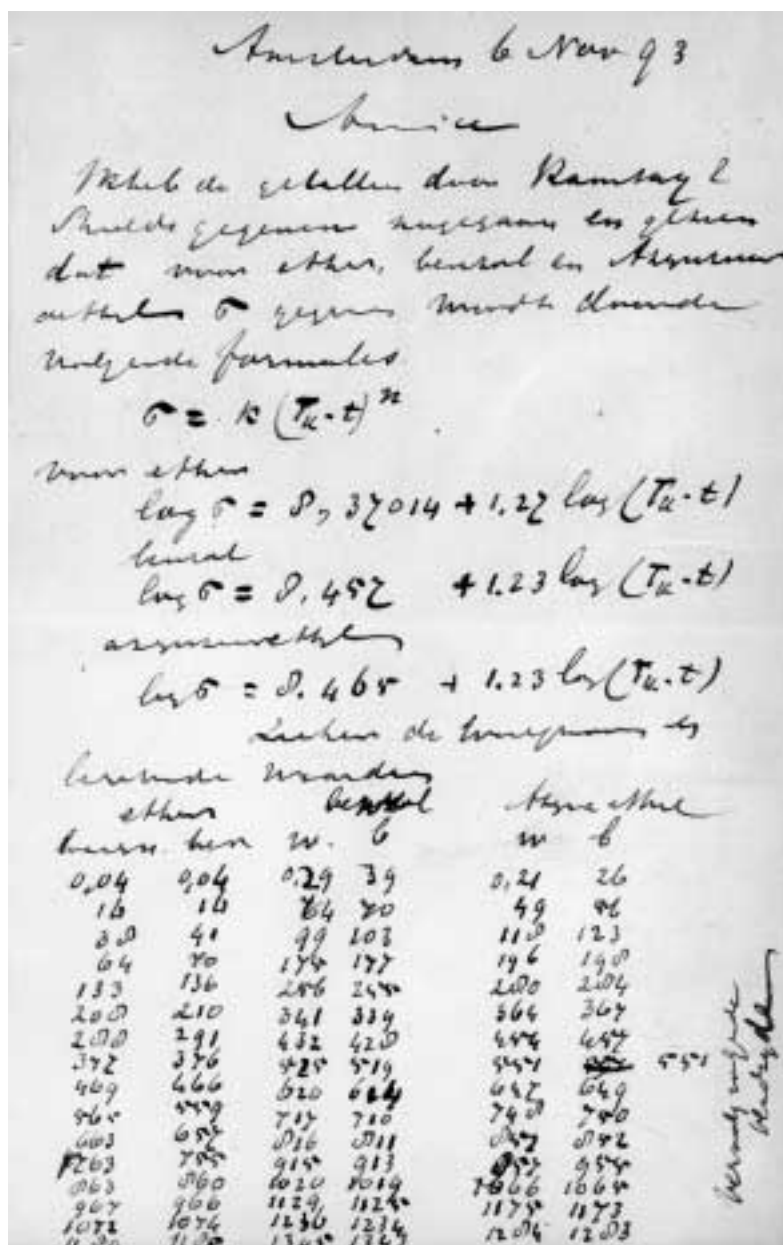 Amsterdam 6 Nov 93
Amice
Ik heb de getallen door Ramsay &
Shields gegeven nagegaan en gezien
dat voor ether, benzol en Azijnzuur
aethyl σ gegeven wordt door de
volgende formules
σ = k (Tk-t)^n
voor ether
log σ = 8,37014 + 1.27 log (Tk-t)
benzol
log σ = 8.457 + 1.23 log (Tk-t)
azijnzuuraethyl
log σ = 8.465 + 1.23 log (Tk-t)
de waargenomen en
berekende waarden
ether benzol
waarn. ber w. b w b
0,04 0,04 0.29 39 0,21 26
16 16 64 70 49 56
38 41 99 103 118 123
64 70 175 177 196 198
133 136 256 255 280 284
208 210 341 339 364 367
288 291 432 428 454 457
372 376 525 519 551 551
469 466 620 624 647 649
565 559 717 710 748 750
663 657 816 811 857 852
763 755 915 913 957 955
863 860 1020 1019 1066 1065
967 966 1129 1125 1175 1173
1072 1074 1236 1234 1284 1283